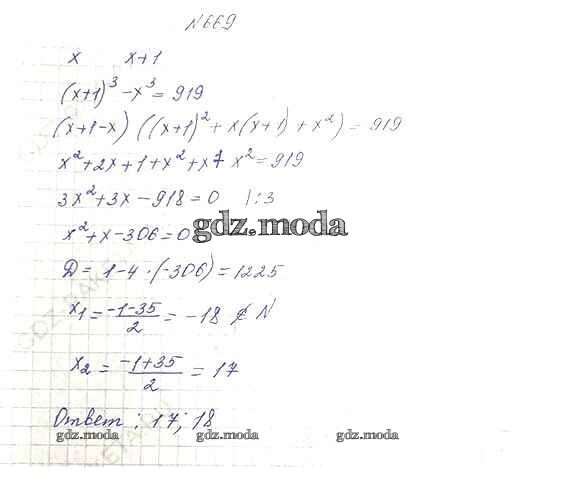 №669
x x+1
(x+1)³ - x³ = 919
(x+1-x) ((x+1)² + x(x+1) + x²) = 919
x² + 2x + 1 + x² + x 7 x² = 919
3x² + 3x - 918 = 0 |:3
x² + x - 306 = 0
gdz.moda
D = 1 - 4 · (-306) = 1225
x₁ = (-1-35)/2 = -18 ∉ N
x₂ = (-1+35)/2 = 17
Ответ: 17; 18
gdz.moda gdz.moda gdz.moda